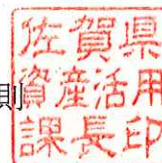 佐賀県
則
資産活用
課長印